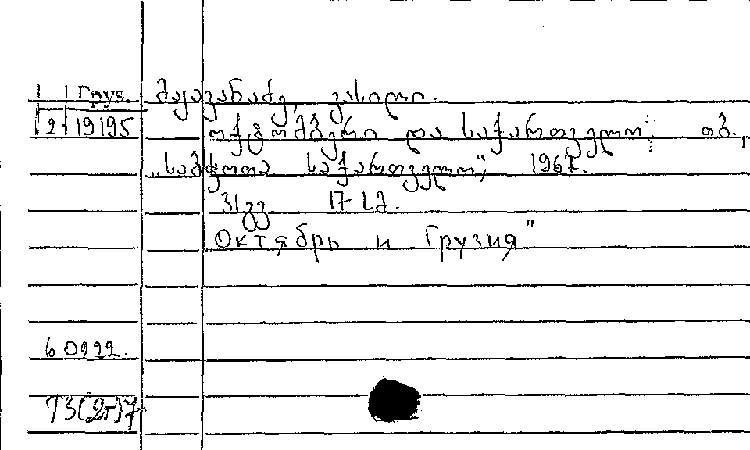 Груз. მაყვანაძე, ვასილი.
2-19195 ოქტომბერი და საქართველო. თბ.,
„საბჭოთა საქართველო", 1967.
31 გვ. 17 სმ.
Октябрь и Грузия"
60922.
73(2г)7